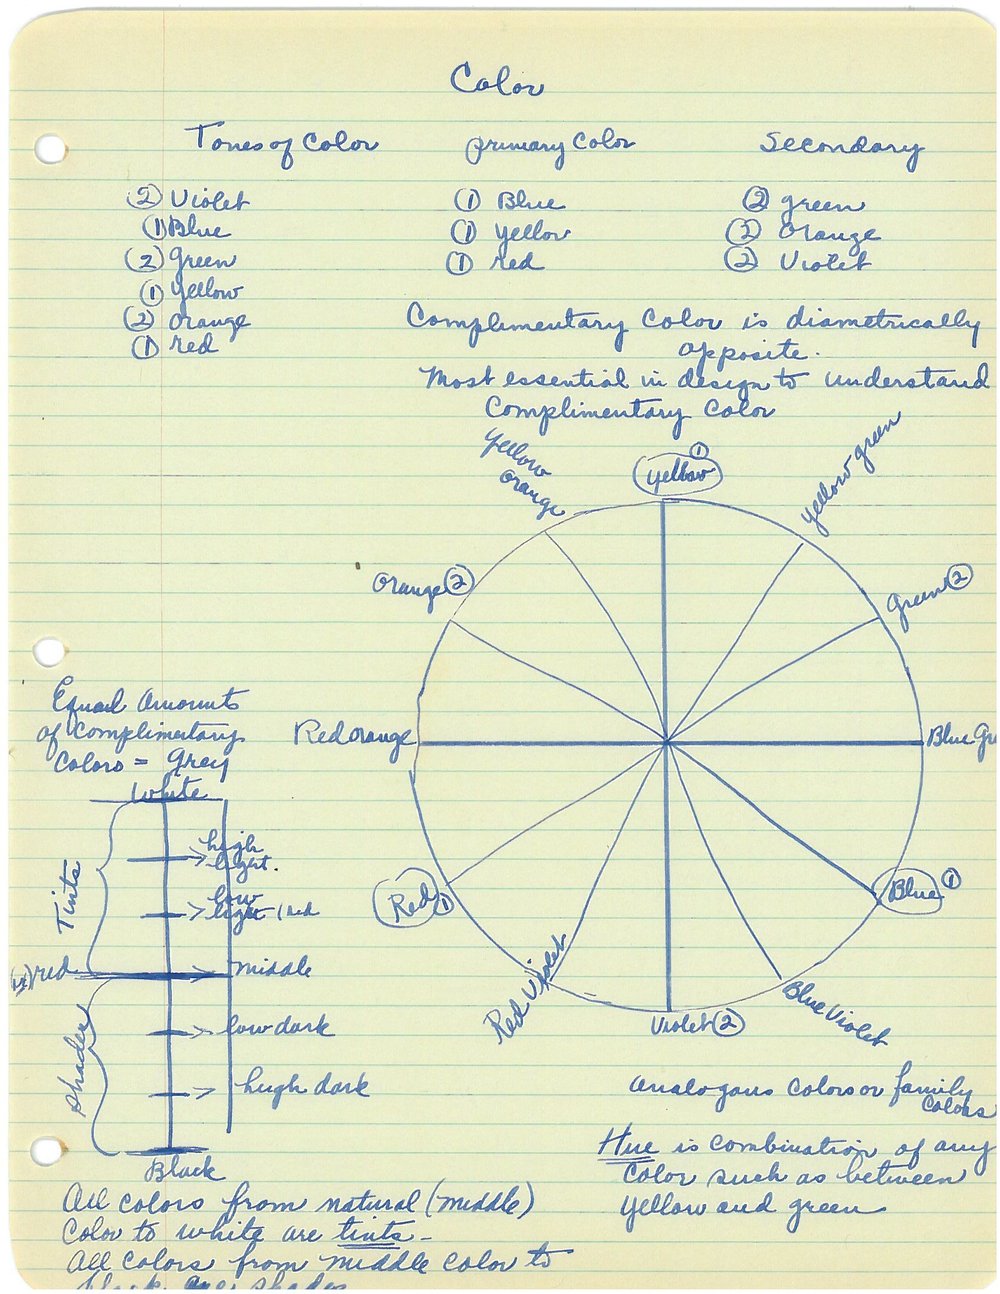 Color
Tones of Color
② Violet
① Blue
② Green
① Yellow
② Orange
① red
primary Color
① Blue
① Yellow
① red
Secondary
② green
② Orange
② Violet
Complimentary Color is diametrically
opposite.
Most essential in design to understand
Complimentary Color
Yellow ①
Yellow green
Green ②
Blue Gre
Blue ①
Blue Violet
Violet ②
Red Violet
Red ①
Red orange
Orange ②
Yellow
Orange
Equal Amounts
of Complimentary
Colors = Grey
White
high
light.
low
light red
middle
low dark
high dark
Black
Tints
red
Shades
Analogous Colors or family
Colors
Hue is combination of any
Color such as between
Yellow and green
All colors from natural (middle)
Color to white are tints -
All colors from middle color to
black are shades